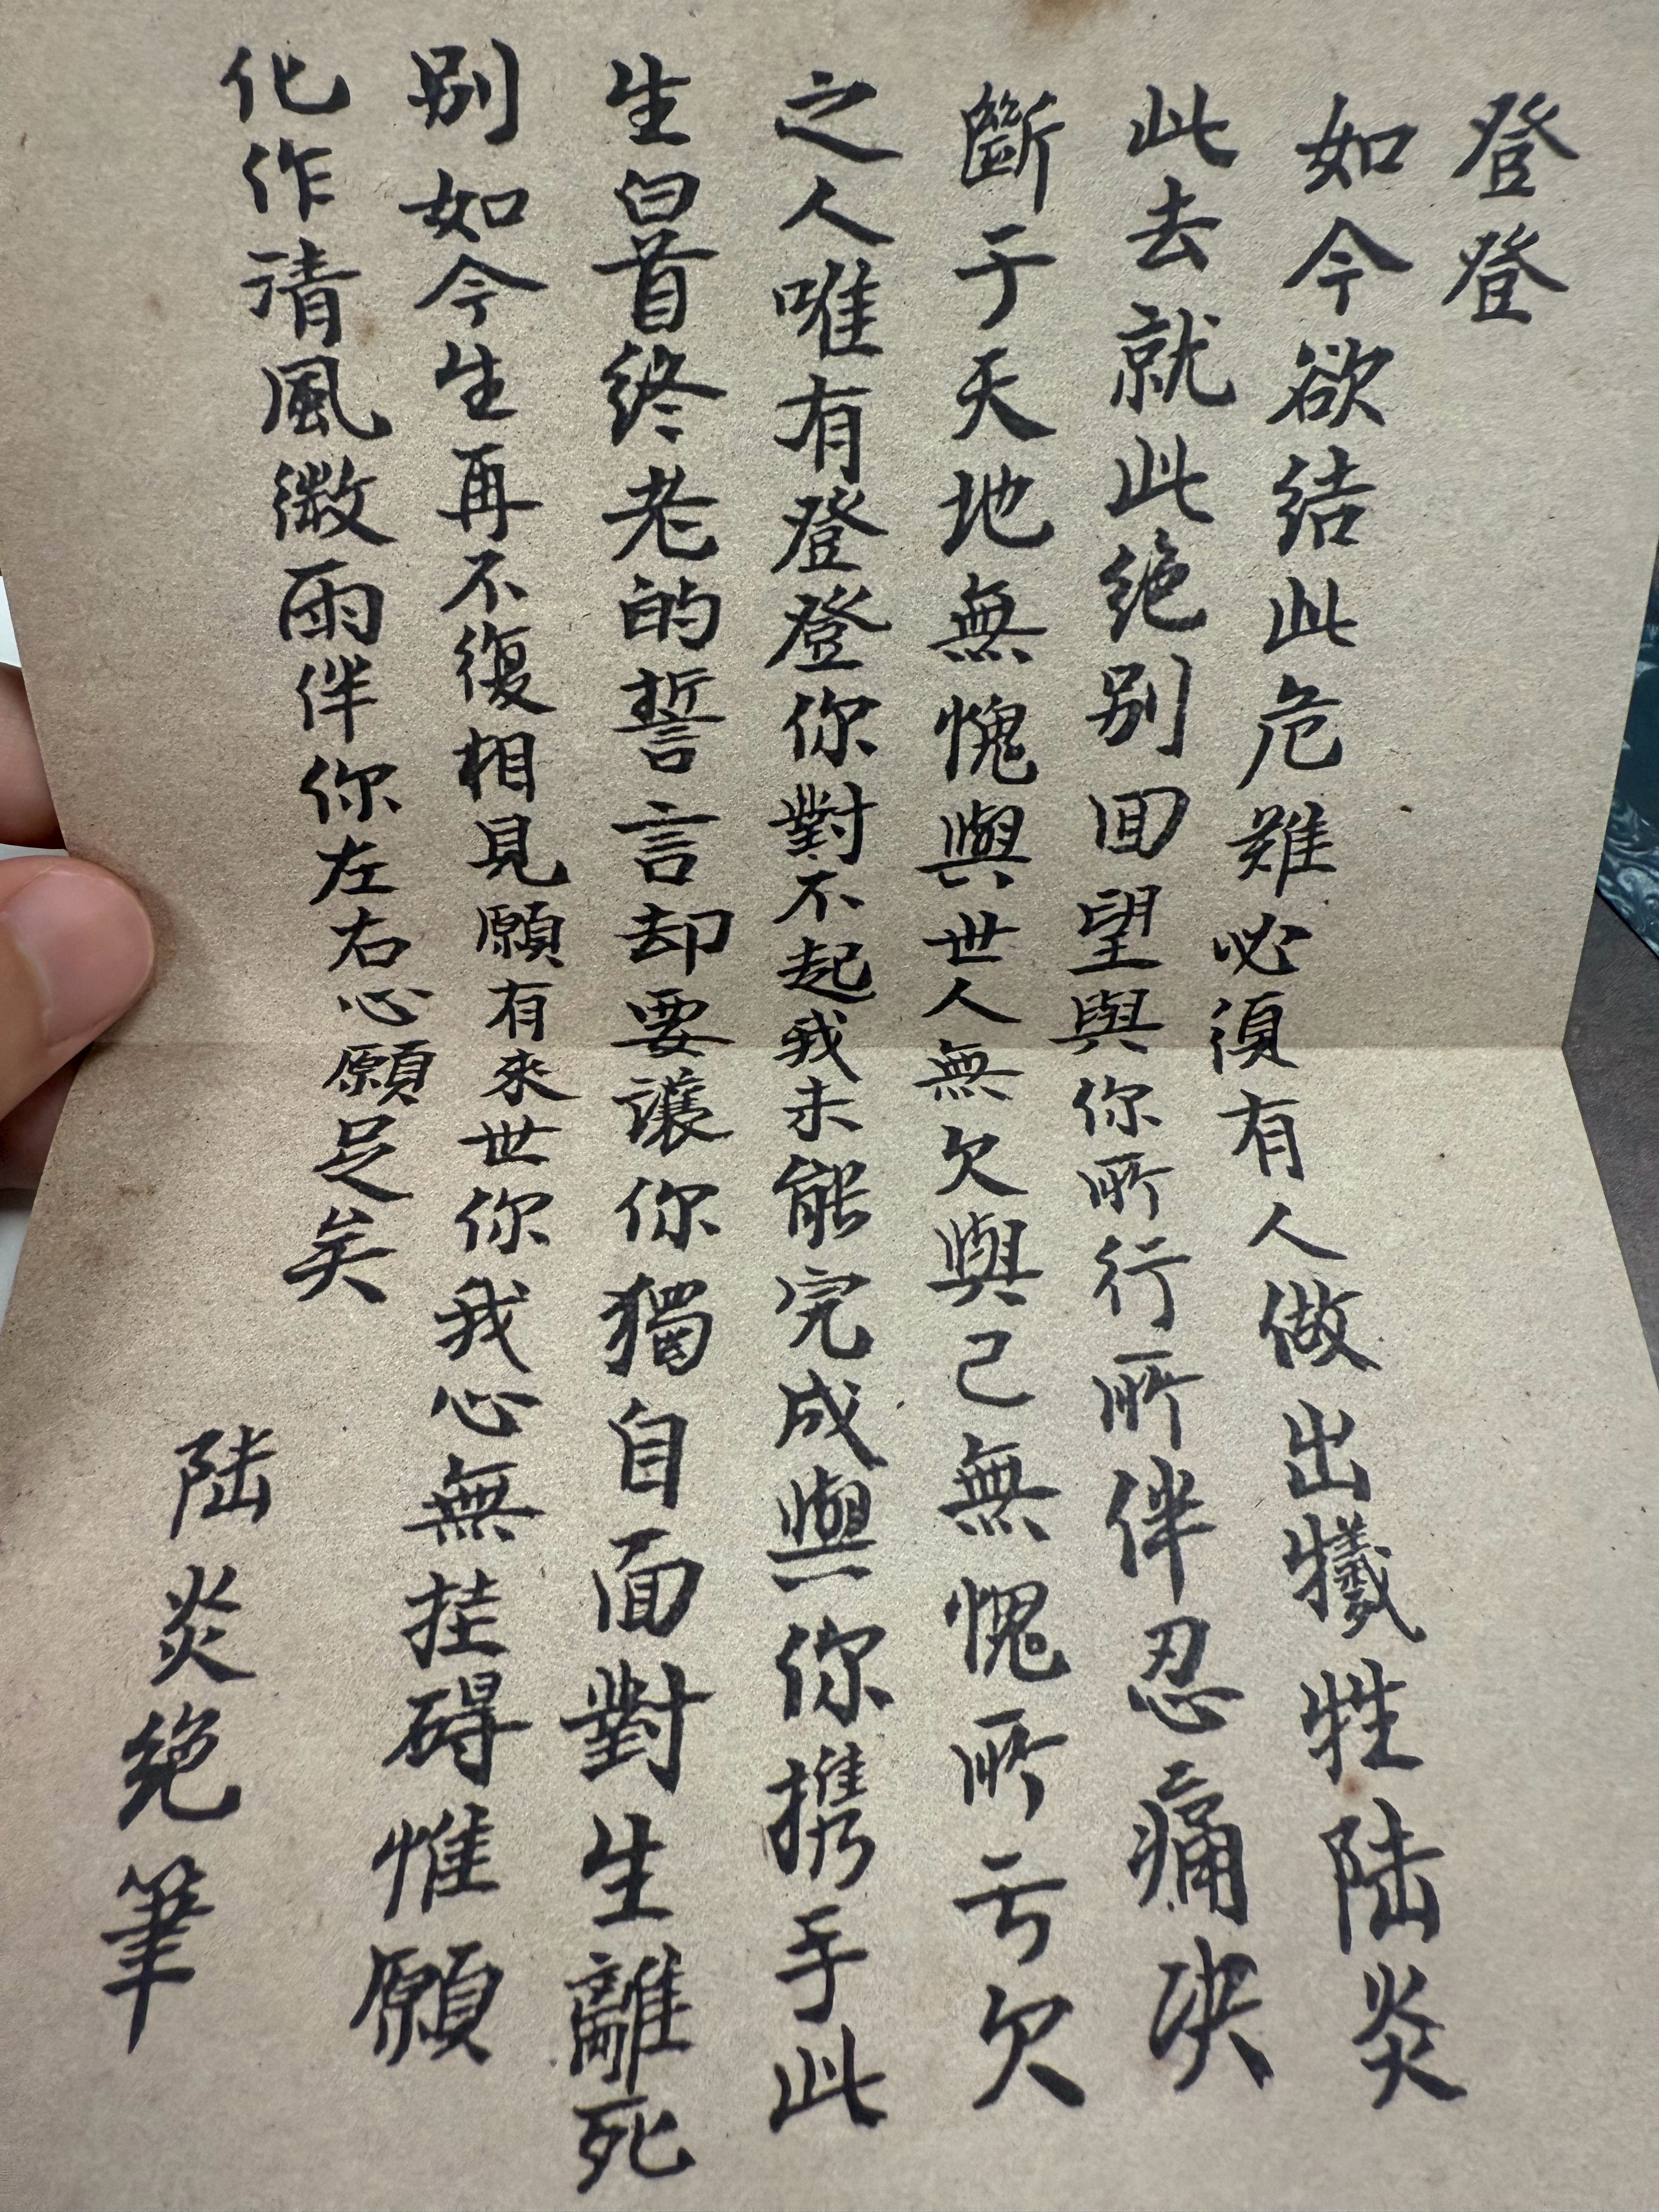 登登
如今欲結此危難必須有人做出犧牲陆炎
此去就此绝别回望與你所行所伴忍痛决
斷于天地無愧與世人無欠與己無愧所亏欠
之人唯有登登你對不起我未能完成與你携手此
生白首终老的誓言却要讓你獨自面對生離死
别如今生再不復相見願有來世你我心無挂碍惟願
化作清風微雨伴你左右心願足矣
陆炎绝筆